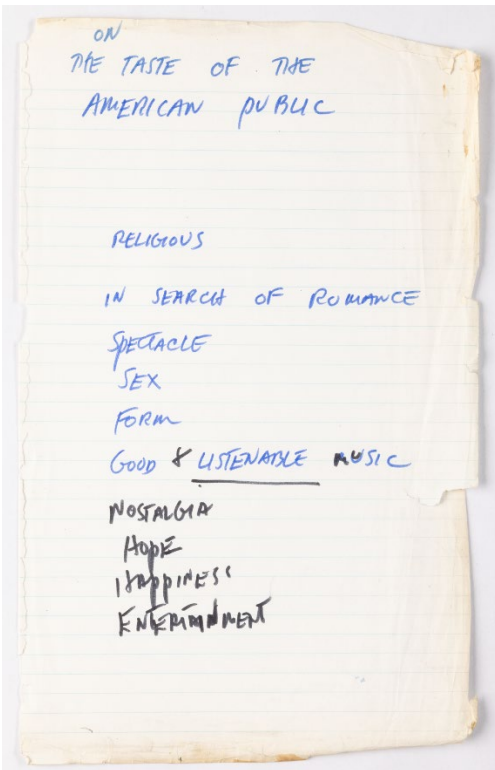 ON
THE TASTE OF THE
AMERICAN PUBLIC
RELIGIOUS
IN SEARCH OF ROMANCE
SPECTACLE
SEX
FORM
GOOD & LISTENABLE MUSIC
NOSTALGIA
HOPE
HAPPINESS
ENTERTAINMENT